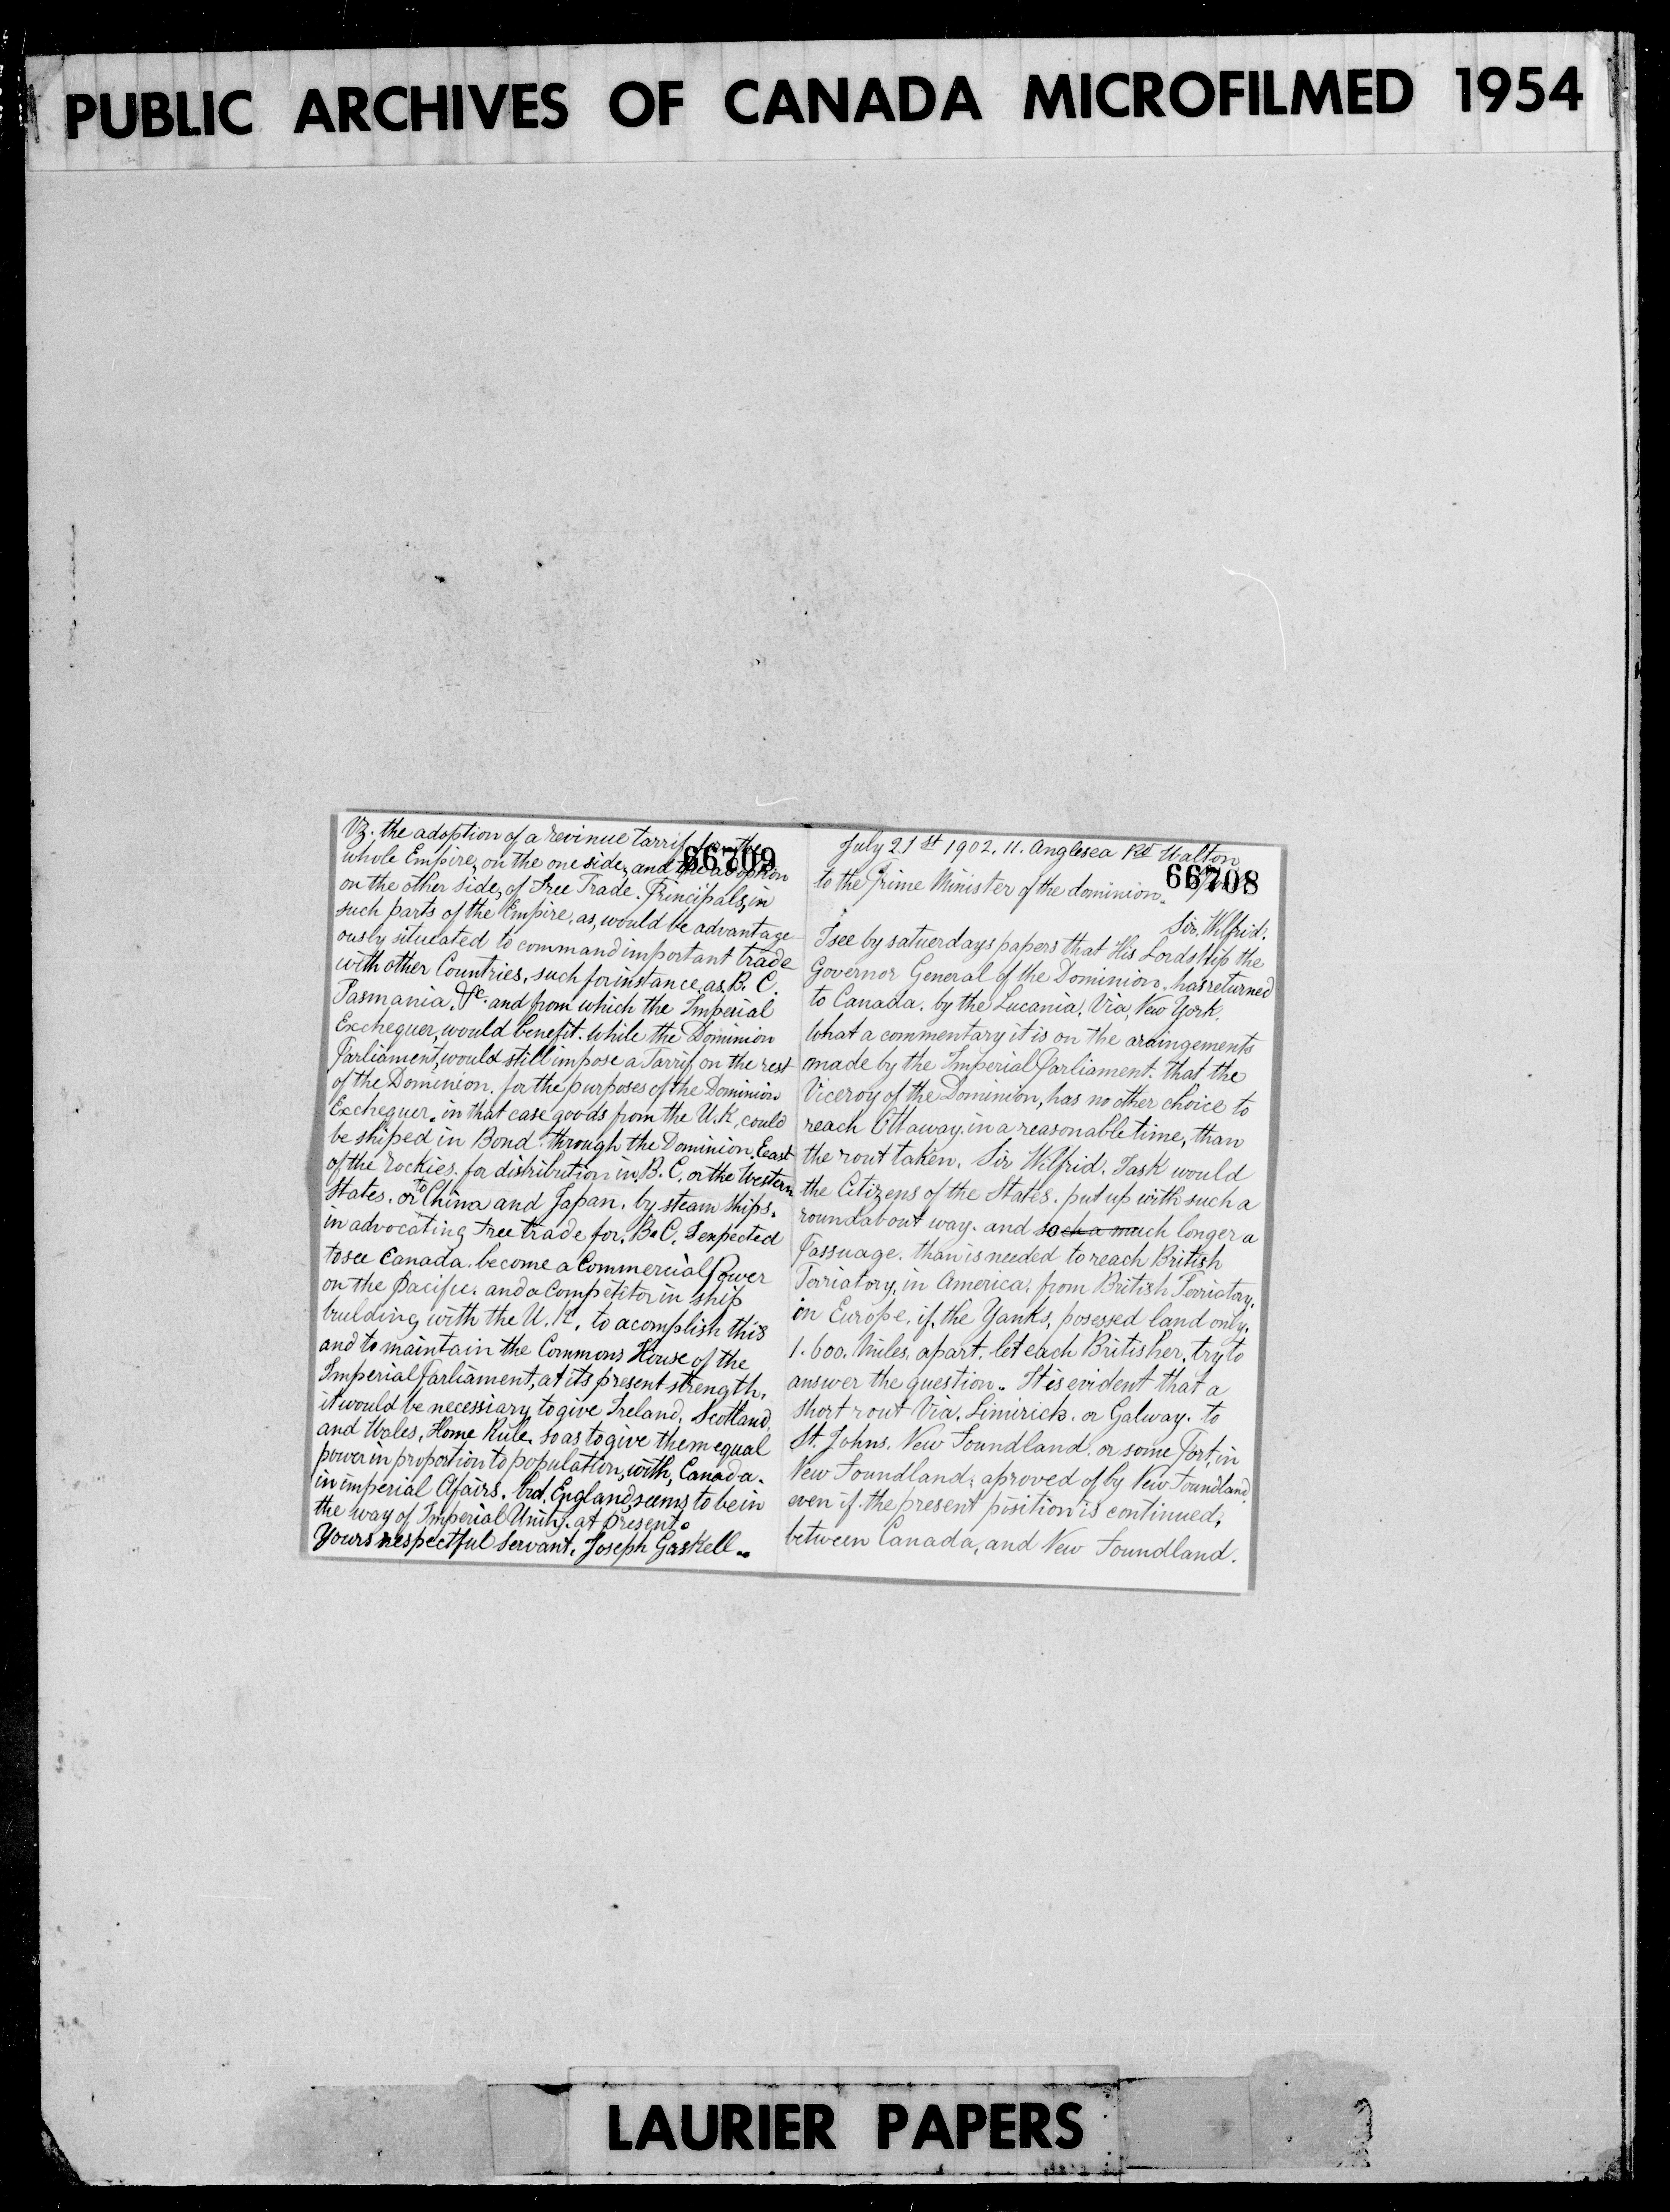 PUBLIC ARCHIVES OF CANADA MICROFILMED 1954
Vz. the adoption of a revinue tarrif for the
66709
whole Empire, on the one side, and the adoption
on the other side, of Free Trade. Principals, in
such parts of the Empire, as, would be advantage
ously situeated to command important trade
with other Countries. such for instance, as, B. C.
Tasmania, &c. and from which the Imperial
Exchequer, would benefit. while the Dominion
Parliament, would still impose a Tarrif on the rest
of the Dominion. for the purposes of the Dominion
Exchequer. in that case goods from the U.K, could
be shiped in Bond. through the Dominion. Eeast
of the Rockies. for distribution in. B. C. or the Western
States. or to China and Japan. by steam ships.
in advocating free trade for. B. C. I expected
to see Canada. become a Commercial Power
on the Pacific. and a Competitor in ship
building, with the U. K. to acomplish this
and to maintain the Commons House of the
Imperial Parliament, at its present strength.
it would be necessiary to give Ireland. Scotland.
and Wales, Home Rule. so as to give them equal
power in proportion to population, with, Canada.
in imperial Afairs. but, England, seems to be in
the way of Imperial Unity. at present.
Yours respectful Servant. Joseph Gaskell..
July 21st 1902. 11. Anglesea Rd Walton
to the Prime Minister of the dominion.
66708
Sir, Wilfrid.
I see by satuerdays papers that His Lordship the
Governor General of the Dominion, has returned
to Canada. by the Lucania, Via, New York.
What a commentary it is on the araingements
made by the Imperial Parliament. that the
Viceroy of the Dominion, has no other choice to
reach Ottaway. in a reasonable time, than
the rout taken. Sir Wilfrid. I ask would
the Citizens of the States. put up with such a
roundabout way. and such a much longer a
Passuage. than is needed to reach British
Terriatory, in America. from British Terriatory.
in Europe. if, the Yanks, posessed land only.
1.600. Miles, apart. let each Britisher, try to
answer the question. It is evident that a
short rout Via. Limirick. or Galway. to
St. Johns. New Foundland. or some Port, in
New Foundland; aproved of by New Foundland.
even if the present position is continued,
between Canada, and New Foundland.
LAURIER PAPERS